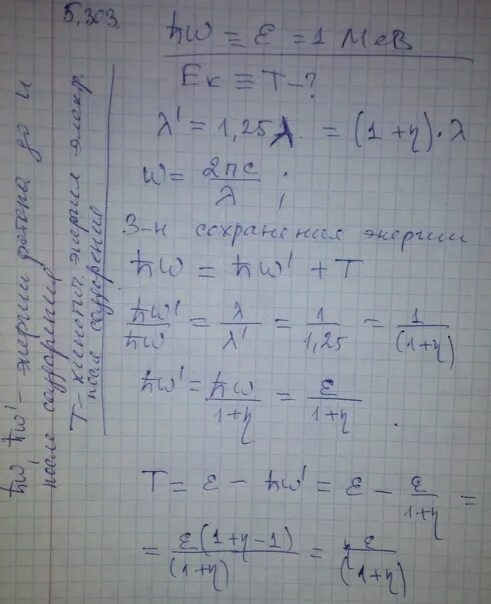 5.303.
ħω ≡ ε = 1 МеВ
Eк ≡ T - ?
λ' = 1,25λ = (1+η)·λ
ω = 2πc/λ ;
З-н сохранения энергии
ħω = ħω' + T
ħω'/ħω = λ/λ' = 1/1,25 = 1/(1+η)
ħω' = ħω/(1+η) = ε/(1+η) .
T = ε - ħω' = ε - ε/(1+η) =
= ε(1+η-1)/(1+η) = ηε/(1+η)
ħω, ħω' - энергии фотона до и
после соударения
T - кинетич. энергия электр.
после соударения